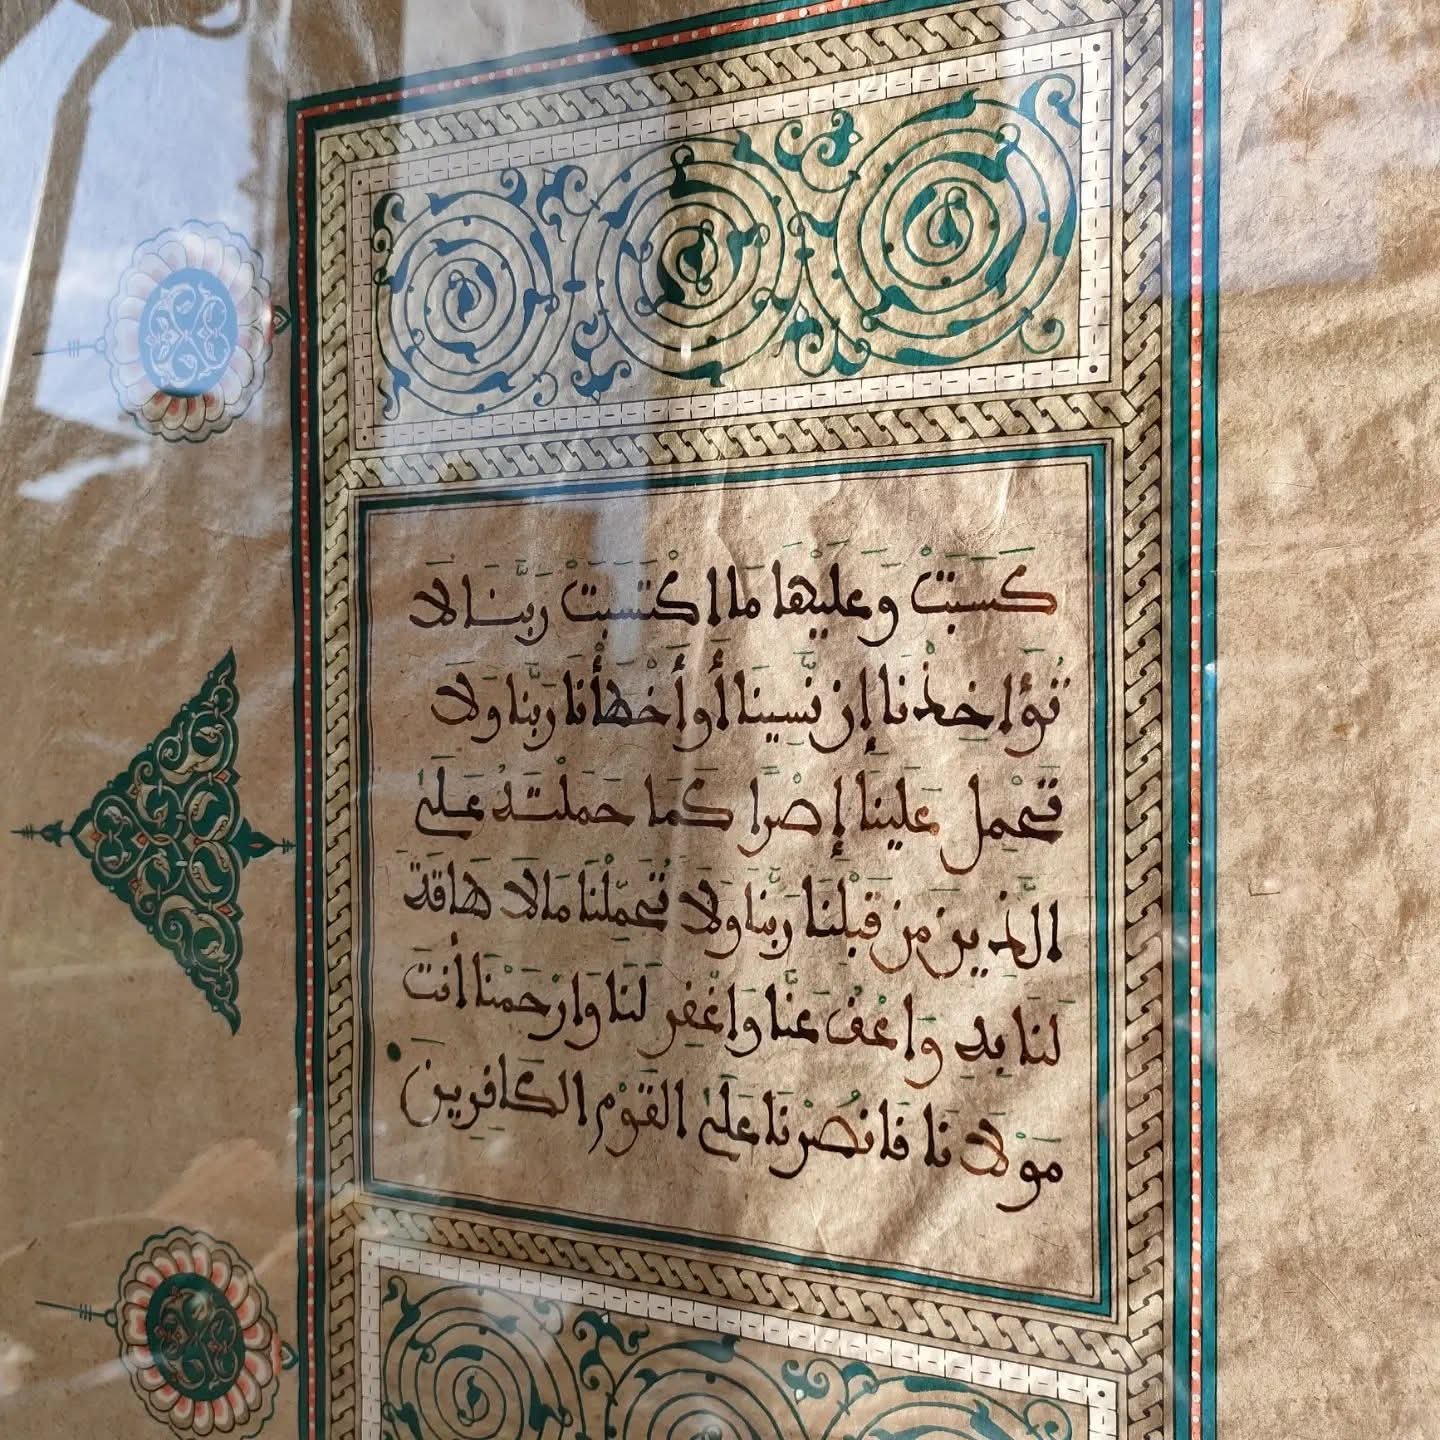 كَسَبَتْ وَعَلَيْهَا مَا اكْتَسَبَتْ رَبَّنَا لَا
تُؤَاخِذْنَا إِن نَّسِينَا أَوْ أَخْطَأْنَا رَبَّنَا وَلَا
تَحْمِلْ عَلَيْنَا إِصْرًا كَمَا حَمَلْتَهُ عَلَى
الَّذِينَ مِن قَبْلِنَا رَبَّنَا وَلَا تُحَمِّلْنَا مَا لَا طَاقَةَ
لَنَا بِهِ وَاعْفُ عَنَّا وَاغْفِرْ لَنَا وَارْحَمْنَا أَنتَ
مَوْلَانَا فَانصُرْنَا عَلَى الْقَوْمِ الْكَافِرِينَ